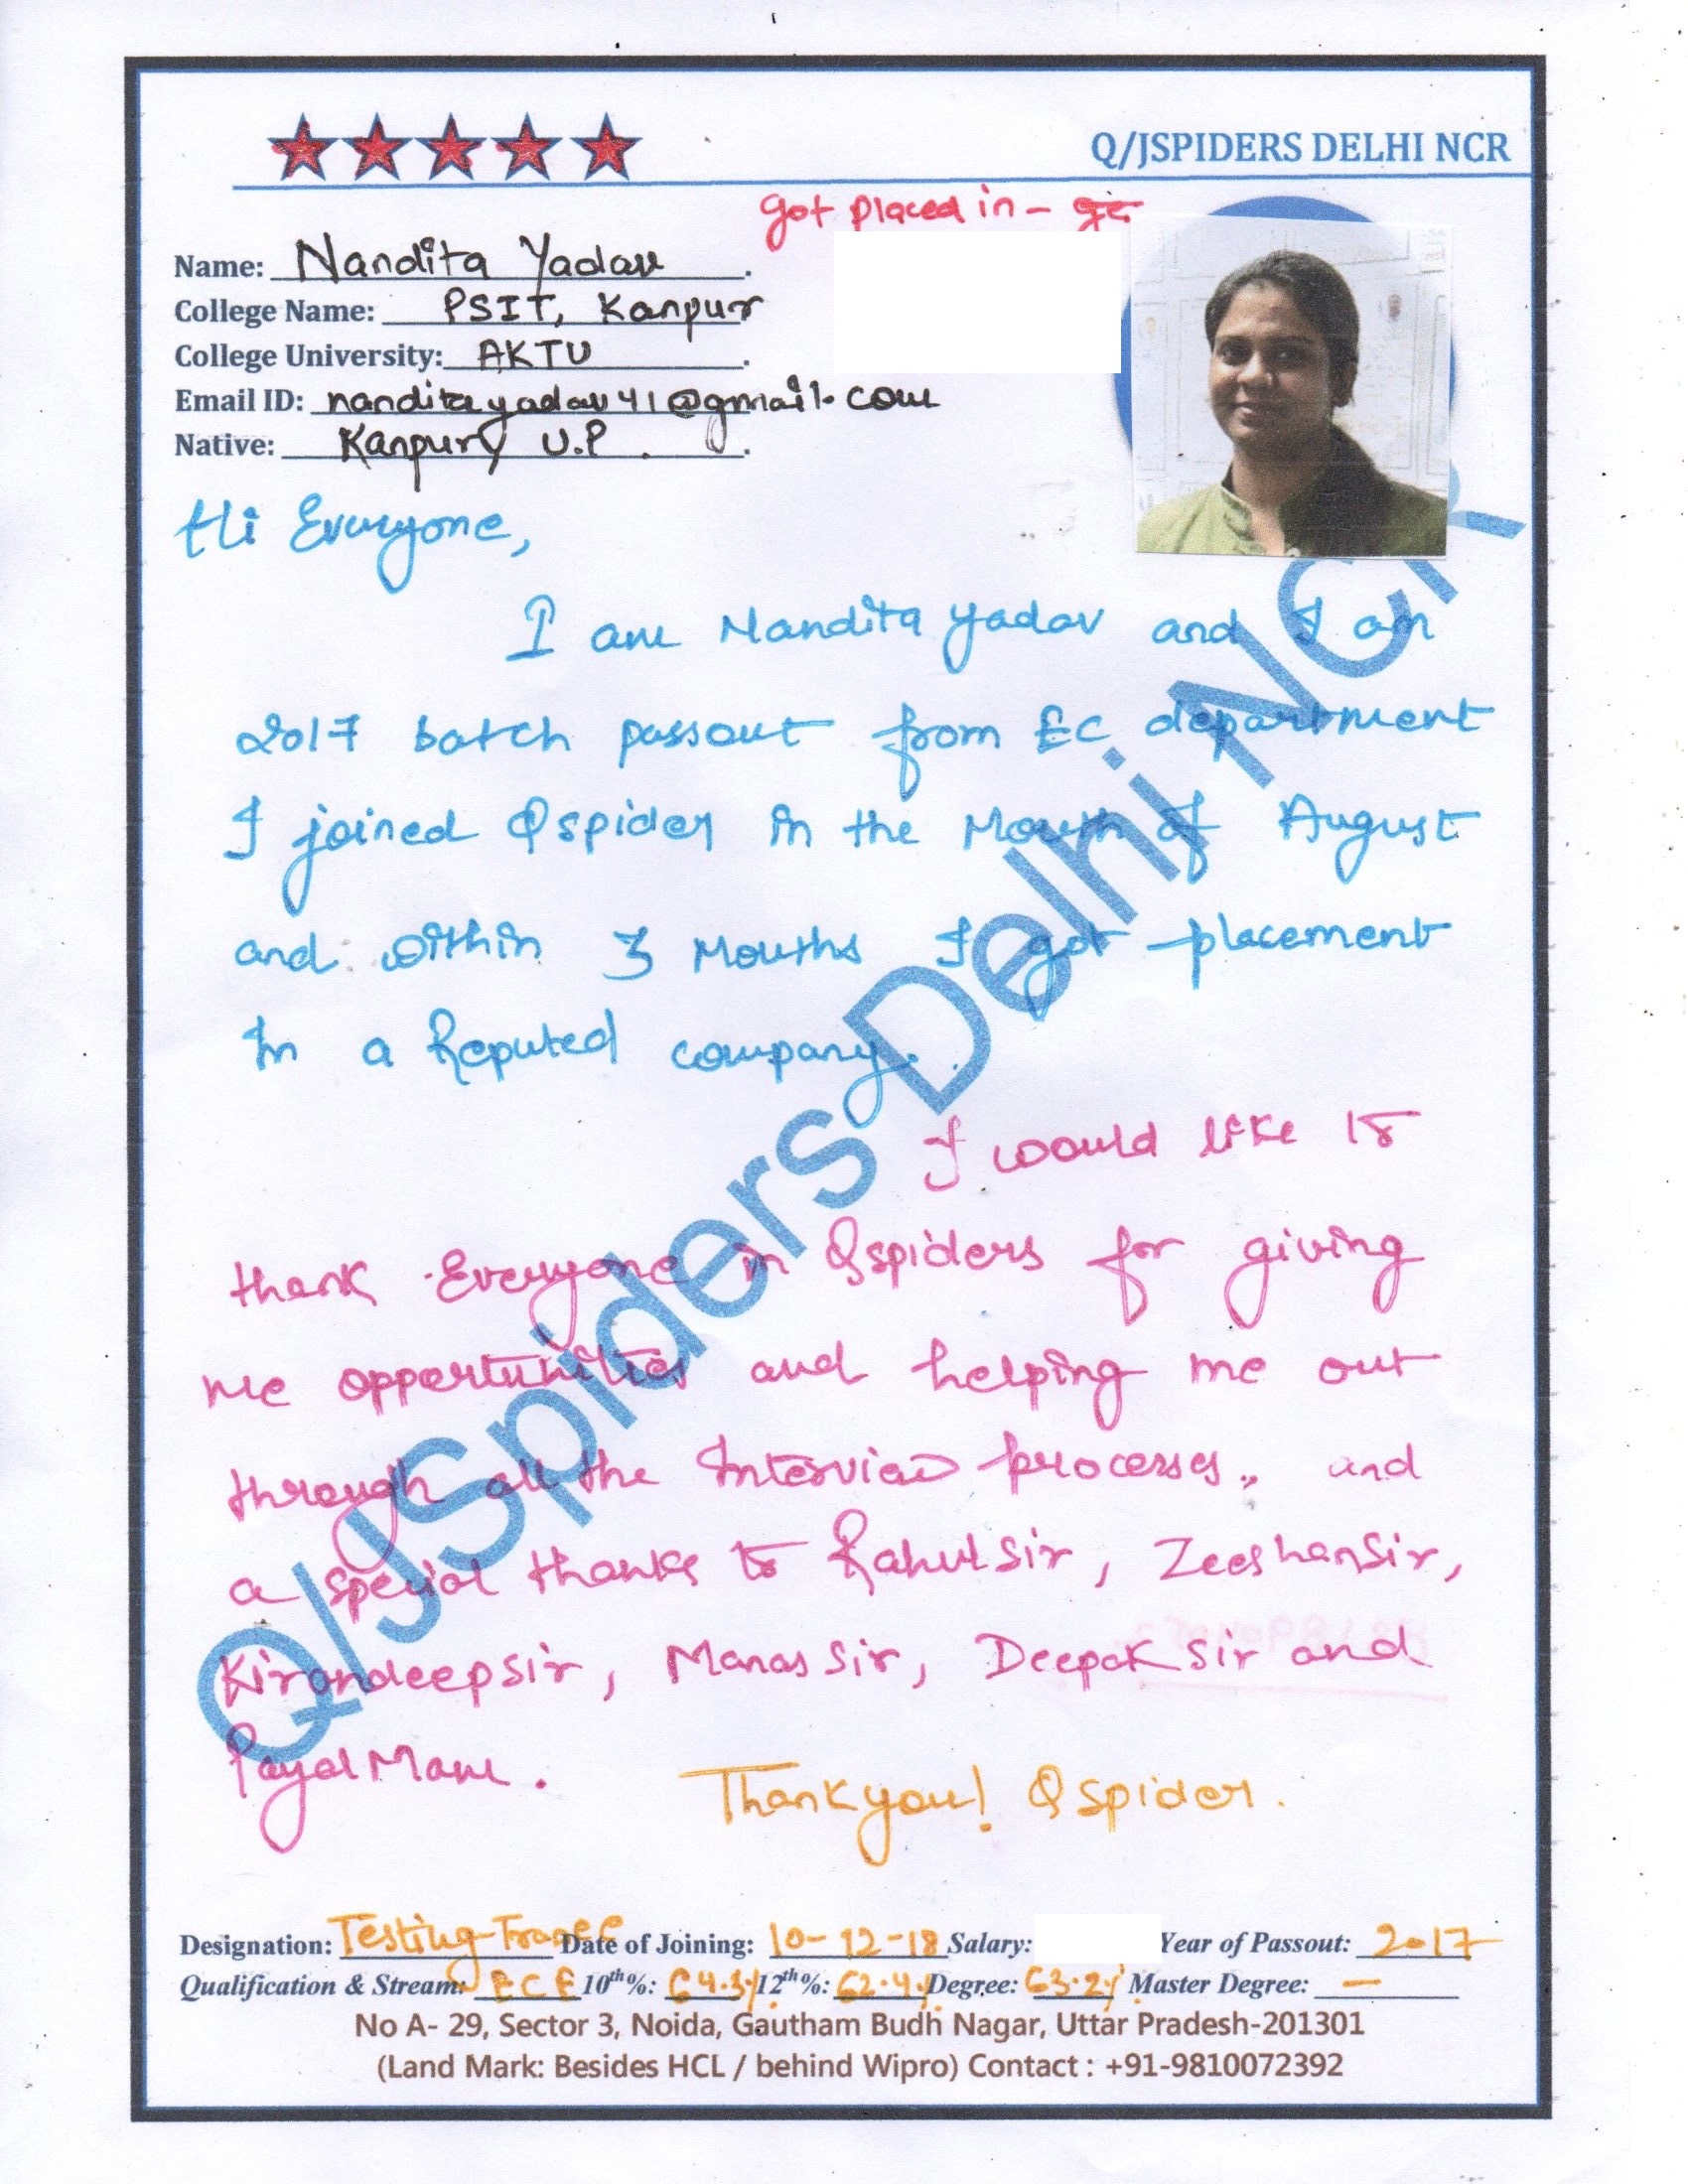 Q/JSPIDERS DELHI NCR
got placed in -
Name: Nandita Yadav.
College Name: PSIT, Kanpur
College University: AKTU.
Email ID: nanditayadav41@gmail.com
Native: Kanpur, U.P.
Hi Everyone,
I am Nandita yadav and I am
2017 batch passout from EC department
I joined Qspider in the Month of August
and within 3 Months I got placement
In a Reputed company.
I would like to
thank Everyone in Qspiders for giving
me opportunities and helping me out
through all the Interview processes, and
a special thanks to Rahul sir, Zeeshan Sir,
Kirandeep sir, Manas Sir, Deepak Sir and
Payal Mam.
Thank you! Qspider.
Q/JSpiders Delhi NCR
Designation: Testing Date of Joining: 10-12-18 Salary: Year of Passout: 2017
Qualification & Stream: ECE 10th%: 64.3% 12th%: 62.4% Degree: 63.2% Master Degree: —
No A- 29, Sector 3, Noida, Gautham Budh Nagar, Uttar Pradesh-201301
(Land Mark: Besides HCL / behind Wipro) Contact : +91-9810072392